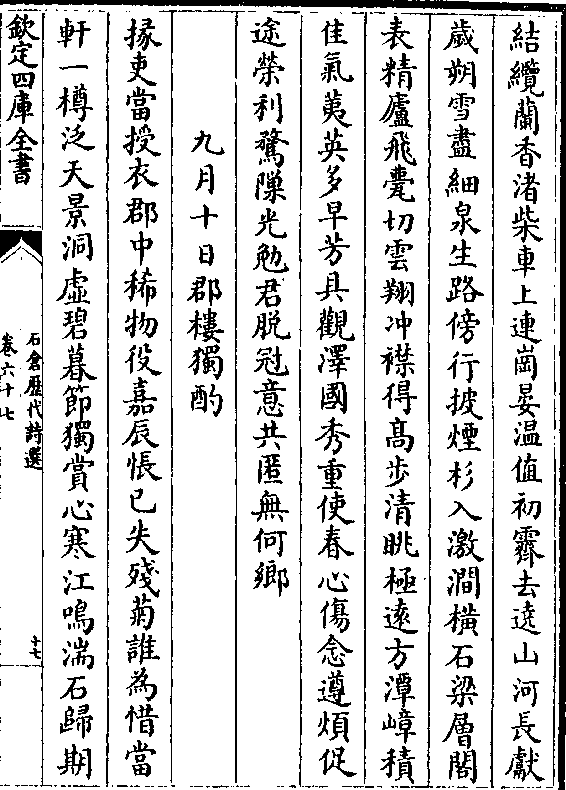 結纜蘭香渚柴車上連崗晏温值初霽去遶山河長獻
歲朔雪盡細泉生路傍行披煙杉入激澗橫石梁層閣
表精廬飛甍切雲翔冲襟得髙步清眺極逺方潭嶂積
佳氣荑英多早芳具觀澤國秀重使春心傷念遵煩促
途榮利騖隟光勉君脱冠意共匿無何鄉
九月十日郡樓獨酌
掾吏當授衣郡中稀物役嘉辰悵已失殘菊誰為惜當
軒一樽泛天景洞虛碧暮節獨賞心寒江鳴湍石歸期
欽定四庫全書
石倉歷代詩選
卷六十七
十七